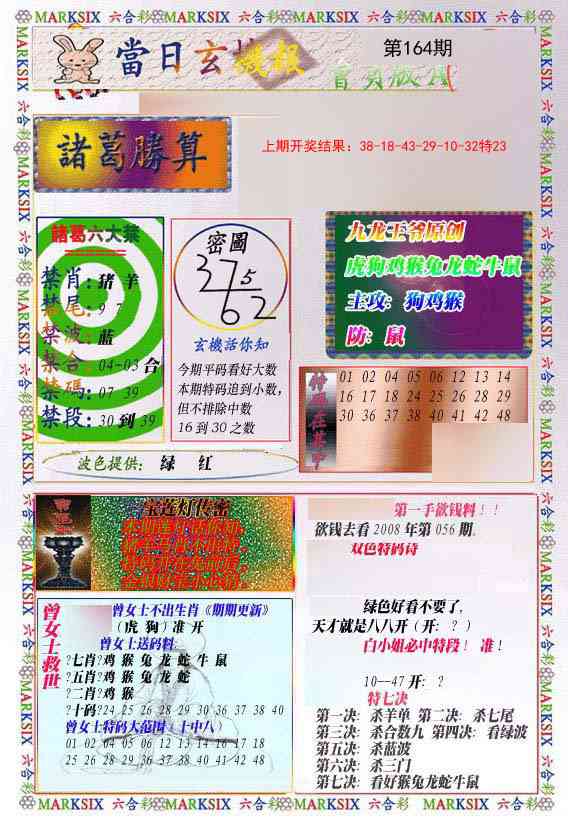 MARKSIX 六合彩 MARKSIX 六合彩 MARKSIX 六合彩 MARKSIX 六合彩
當日玄機報
第164期
諸葛勝算
上期开奖结果：38-18-43-29-10-32特23
諸葛六大禁
禁肖：猪 羊
禁尾：9 7
禁波：蓝
禁合：04-03 合
禁碼：07 39
禁段：30 到 39
密圖
375
62
玄機活你知
今期平码看好大数
本期特码追到小数，
但不排除中数
16 到 30 之数
九龙王爷原创
虎狗鸡猴兔龙蛇牛鼠
主攻：狗鸡猴
防：鼠
特码在其中
01 02 04 05 06 12 13 14
16 17 18 24 25 26 28 29
30 36 37 38 40 41 42 48
波色提供： 绿 红
宝莲灯传密
第一手欲钱料！！
欲钱去看 2008 年第 056 期。
双色特码诗
绿色好看不要了，
天才就是八八开（开：？）
白小姐必中特段！ 准！
10--47 开：？
特七决
第一决：杀羊单 第二决：杀七尾
第三决：杀合数九 第四决：看绿波
第五决：杀蓝波
第六决：杀三门
第七决：看好猴兔龙蛇牛鼠
曾女士救世
曾女士不出生肖《期期更新》
（虎 狗）准 开
曾女士送码料：
?七肖?鸡 猴 兔 龙 蛇 牛 鼠
?五肖?鸡 猴 兔 龙 蛇
?二肖?鸡 猴
?十码?24 25 26 28 29 30 36 37 38 40
曾女士特码大范围（十中八）
01 02 04 05 06 12 13 14 16 17 18
25 26 28 29 30 36 37 38 40 41 42 48
MARKSIX 六合彩 MARKSIX 六合彩 MARKSIX 六合彩 MARKSIX 六合彩